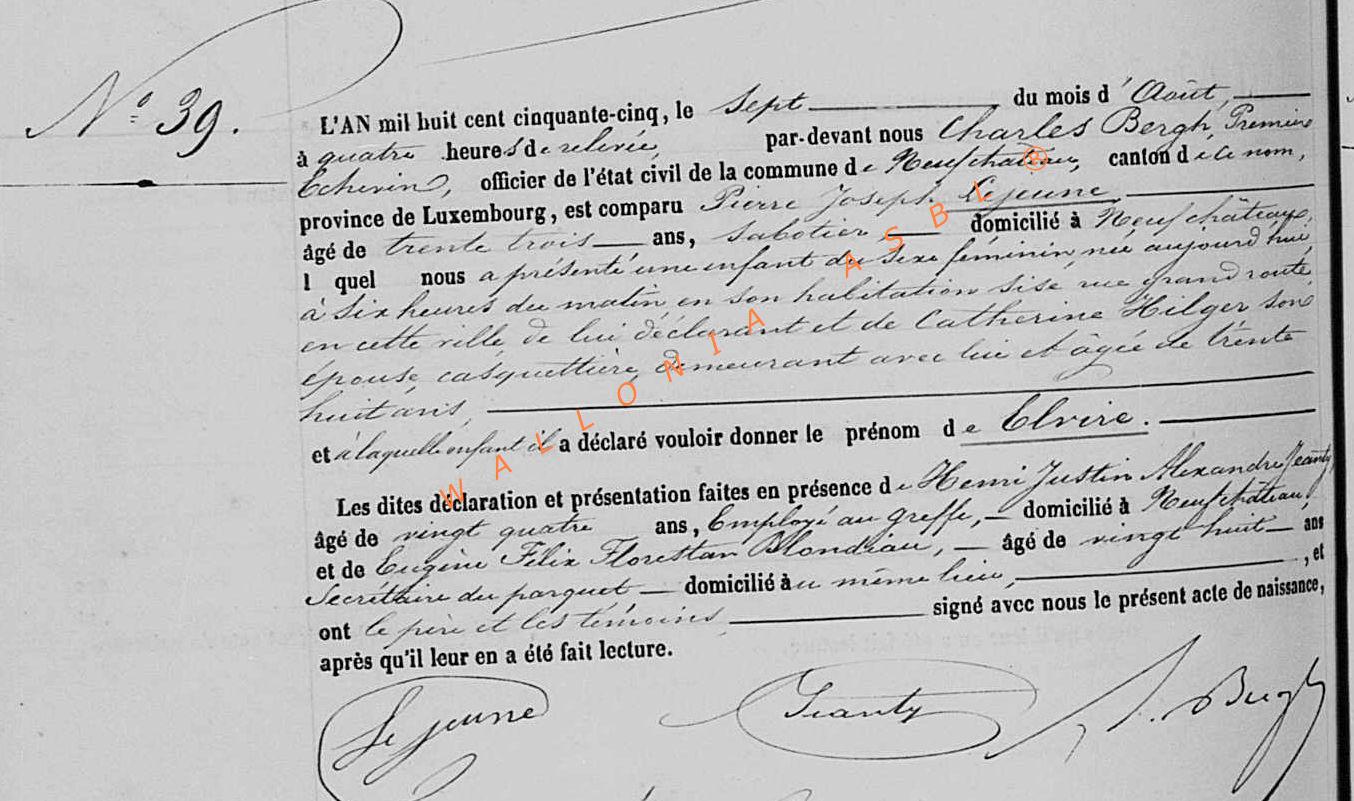 N° 39.
L'AN mil huit cent cinquante-cinq, le Sept du mois d'Août,
à quatre heures de relevée, par-devant nous Charles Bergh, Premier
Echevin, officier de l'état civil de la commune de Neufchâteau, canton de ce nom,
province de Luxembourg, est comparu Pierre Joseph Lejeune
âgé de trente trois ans, Sabotier domicilié à Neufchâteau,
l quel nous a présenté une enfant du sexe féminin née aujourd'hui
à six heures du matin en son habitation sise rue grand route
en cette ville de lui déclarant et de Catherine Hilger son
épouse, casquettière, demeurant avec lui et âgée de trente
huit ans,
et à laquelle enfant il a déclaré vouloir donner le prénom de Elvire.
Les dites déclaration et présentation faites en présence de Henri Justin Alexandre Jeanty
âgé de vingt quatre ans, Employé au greffe, domicilié à Neufchâteau,
et de Eugène Félix Florestan Blondiau, âgé de vingt huit ans
Secrétaire du parquet domicilié au même lieu, , et
ont le père et les témoins signé avec nous le présent acte de naissance,
après qu'il leur en a été fait lecture.
Lejeune Jeanty Bergh
WALLONIA ASBL ®